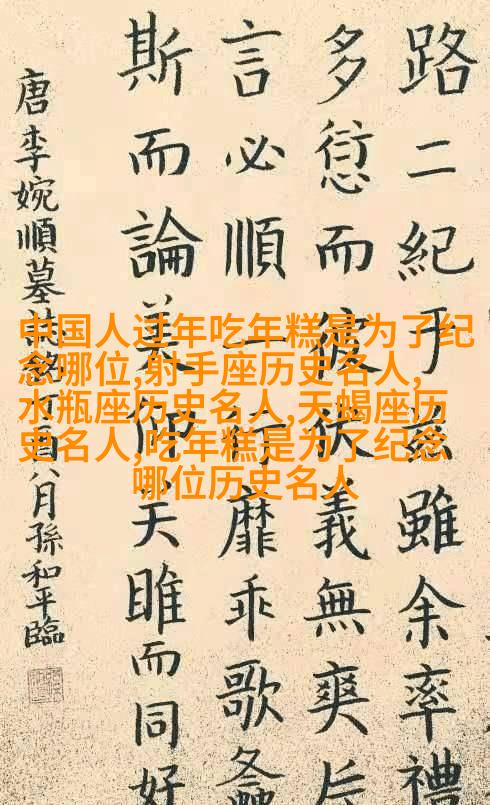 中国人过年吃年糕是为了纪
念哪位,射手座历史名人,
水瓶座历史名人,天蝎座历
史名人,吃年糕是为了纪念
哪位历史名人
路二紀乎茲雖余率禮
多愆而復伏義無爽
言必順行靡乖歌
斯而論美仰天睢而同好
唐李婉順墓誌銘丁酉八月孫和平臨